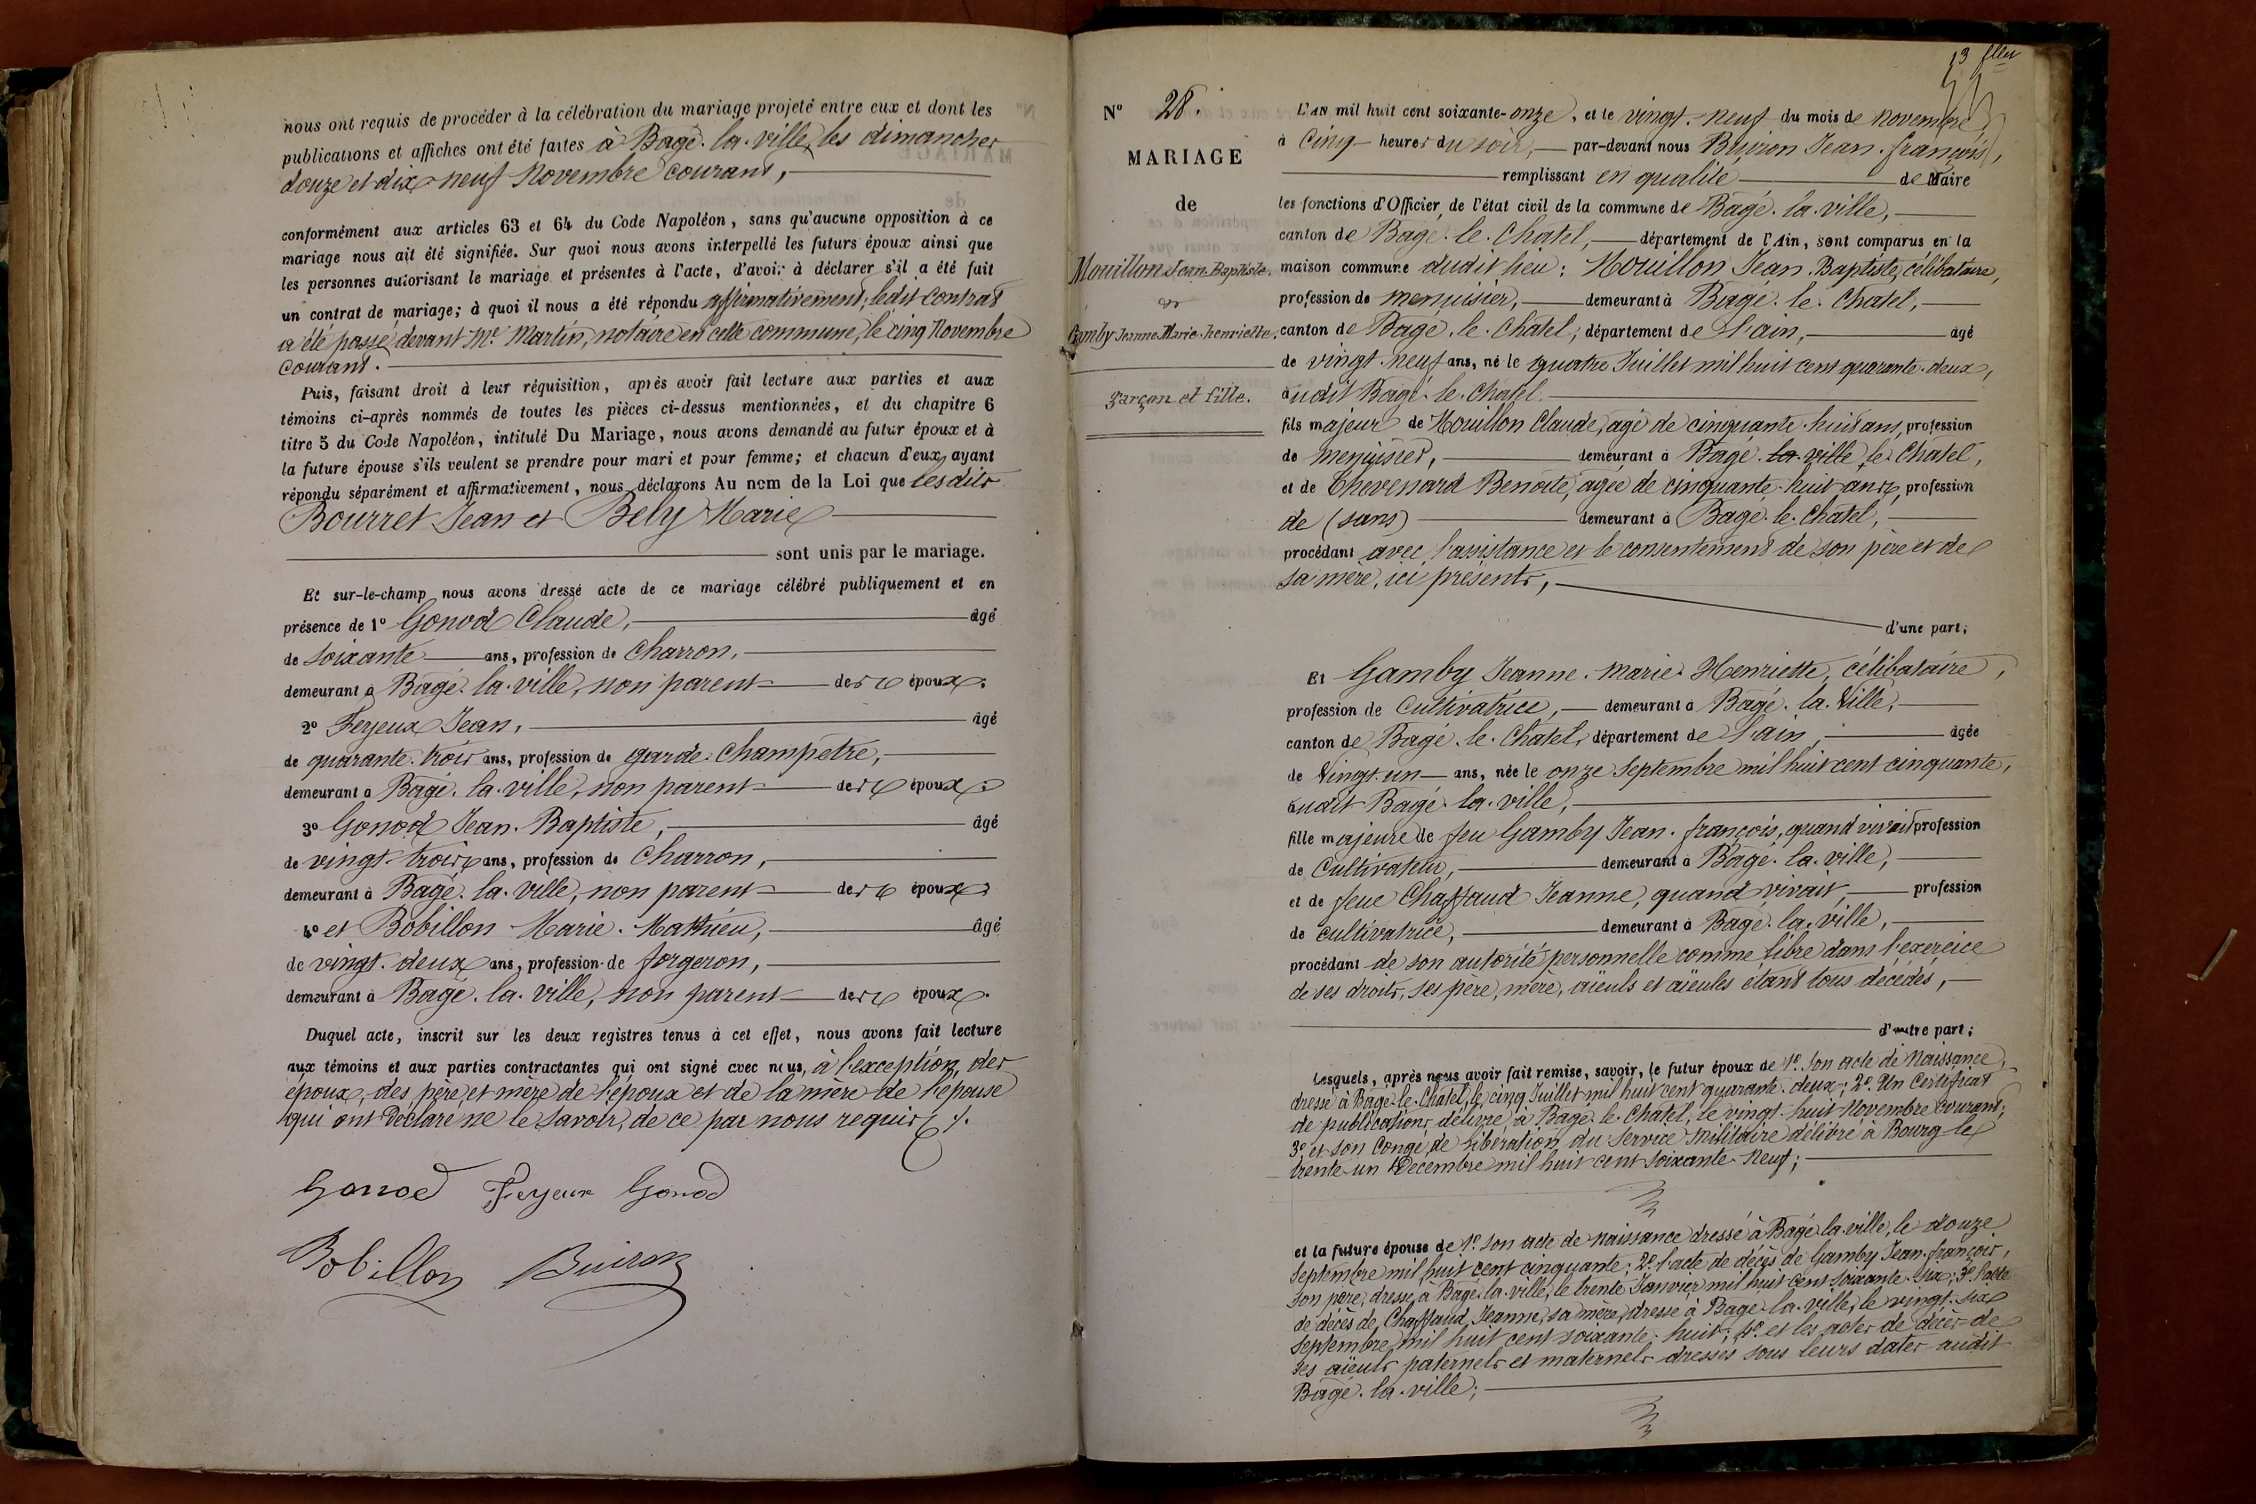 nous ont requis de procéder à la célébration du mariage projeté entre eux et dont les
publications et affiches ont été faites à Bagé-la-ville, les dimanches
douze et dix-neuf Novembre courant,
conformément aux articles 63 et 64 du Code Napoléon, sans qu'aucune opposition à ce
mariage nous ait été signifiée. Sur quoi nous avons interpellé les futurs époux ainsi que
les personnes autorisant le mariage et présentes à l'acte, d'avoir à déclarer s'il a été fait
un contrat de mariage; à quoi il nous a été répondu affirmativement; ledit contrat
a été passé devant Me Martin, notaire en cette commune, le cinq Novembre
courant.
Puis, faisant droit à leur réquisition, après avoir fait lecture aux parties et aux
témoins ci-après nommés de toutes les pièces ci-dessus mentionnées, et du chapitre 6
titre 5 du Code Napoléon, intitulé Du Mariage, nous avons demandé au futur époux et à
la future épouse s'ils veulent se prendre pour mari et pour femme; et chacun d'eux ayant
répondu séparément et affirmativement, nous déclarons Au nom de la Loi que lesdits
Bourret Jean et Bely Marie
sont unis par le mariage.
Et sur-le-champ nous avons dressé acte de ce mariage célébré publiquement et en
présence de 1° Gonod Claude, âgé
de soixante ans, profession de Charron,
demeurant à Bagé-la-ville, non parent des époux.
2° Feyeux Jean, âgé
de quarante-trois ans, profession de garde-Champêtre,
demeurant à Bagé-la-ville, non parent des époux.
3° Gonod Jean-Baptiste, âgé
de vingt-trois ans, profession de Charron,
demeurant à Bagé-la-ville, non parent des époux.
4° et Bobillon Marie-Mathieu, âgé
de vingt-deux ans, profession de forgeron,
demeurant à Bagé-la-ville, non parent des époux.
Duquel acte, inscrit sur les deux registres tenus à cet effet, nous avons fait lecture
aux témoins et aux parties contractantes qui ont signé avec nous, à l'exception des
époux, des père et mère de l'époux et de la mère de l'épouse
qui ont Déclaré ne le savoir, de ce par nous requis
Gonod Feyeux Gonod
Bobillon Buiron
N° 28.
MARIAGE
de
Mouillon Jean-Baptiste.
et
Gamby Jeanne-Marie-henriette.
garçon et fille.
L'AN mil huit cent soixante-onze, et le vingt-neuf du mois de novembre
à Cinq heures du soir, par-devant nous Buiron Jean-françois,
remplissant en qualité de Maire
les fonctions d'Officier de l'état civil de la commune de Bagé-la-ville,
canton de Bagé-le-Chatel, département de l'Ain, sont comparus en la
maison commune dudit lieu: Mouillon Jean-Baptiste, célibataire,
profession de menuisier, demeurant à Bagé-le-Chatel,
canton de Bagé-le-Chatel, département de l'ain, âgé
de vingt-neuf ans, né le quatre Juillet mil huit cent quarante-deux,
audit Bagé-le-Chatel.
fils majeur de Mouillon Claude, agé de cinquante-huit ans, profession
de menuisier, demeurant à Bagé-la-ville le Chatel,
et de Chevenard Benoite, agée de cinquante-huit ans, profession
de (sans) demeurant à Bagé-le-Chatel,
procédant avec l'assistance et le consentement de son père et de
sa mère, ici présents,
d'une part;
Et Gamby Jeanne-Marie-Henriette, célibataire,
profession de Cultivatrice, demeurant à Bagé-la-Ville,
canton de Bagé-le-Chatel, département de l'ain, âgée
de Vingt-un ans, née le onze Septembre mil huit cent cinquante,
audit Bagé-la-ville,
fille majeure de feu Gamby Jean-françois, quand vivait profession
de Cultivateur, demeurant à Bagé-la-ville,
et de feue Chaffaud Jeanne, quand vivait, profession
de cultivatrice, demeurant à Bagé-la-ville,
procédant de son autorité personnelle comme libre dans l'exercice
de ses droits, ses père, mère, aïeuls et aïeules étant tous décédés,
d'autre part;
Lesquels, après nous avoir fait remise, savoir, le futur époux de 1° Son acte de Naissance,
dressé à Bagé-le-Chatel, le cinq Juillet mil huit cent quarante-deux; 2° Un Certificat
de publications délivré à Bagé-le-Chatel, le vingt-huit Novembre Courant;
3° et son Congé de libération du service Militaire délivré à Bourg le
trente-un Décembre mil huit cent soixante-neuf;
et la future épouse de 1° Son acte de naissance dressé à Bagé-la-ville, le douze
Septembre mil huit cent cinquante; 2° l'acte de décès de Gamby Jean-françois,
Son père, dressé à Bagé-la-ville, le trente Janvier mil huit cent soixante-six; 3° l'acte
de décès de Chaffaud Jeanne, sa mère, dressé à Bagé-la-ville, le vingt-six
Septembre mil huit cent soixante-huit; 4° et les actes de décès de
ses aïeuls paternels et maternels dressés sous leurs dates audit
Bagé-la-ville;